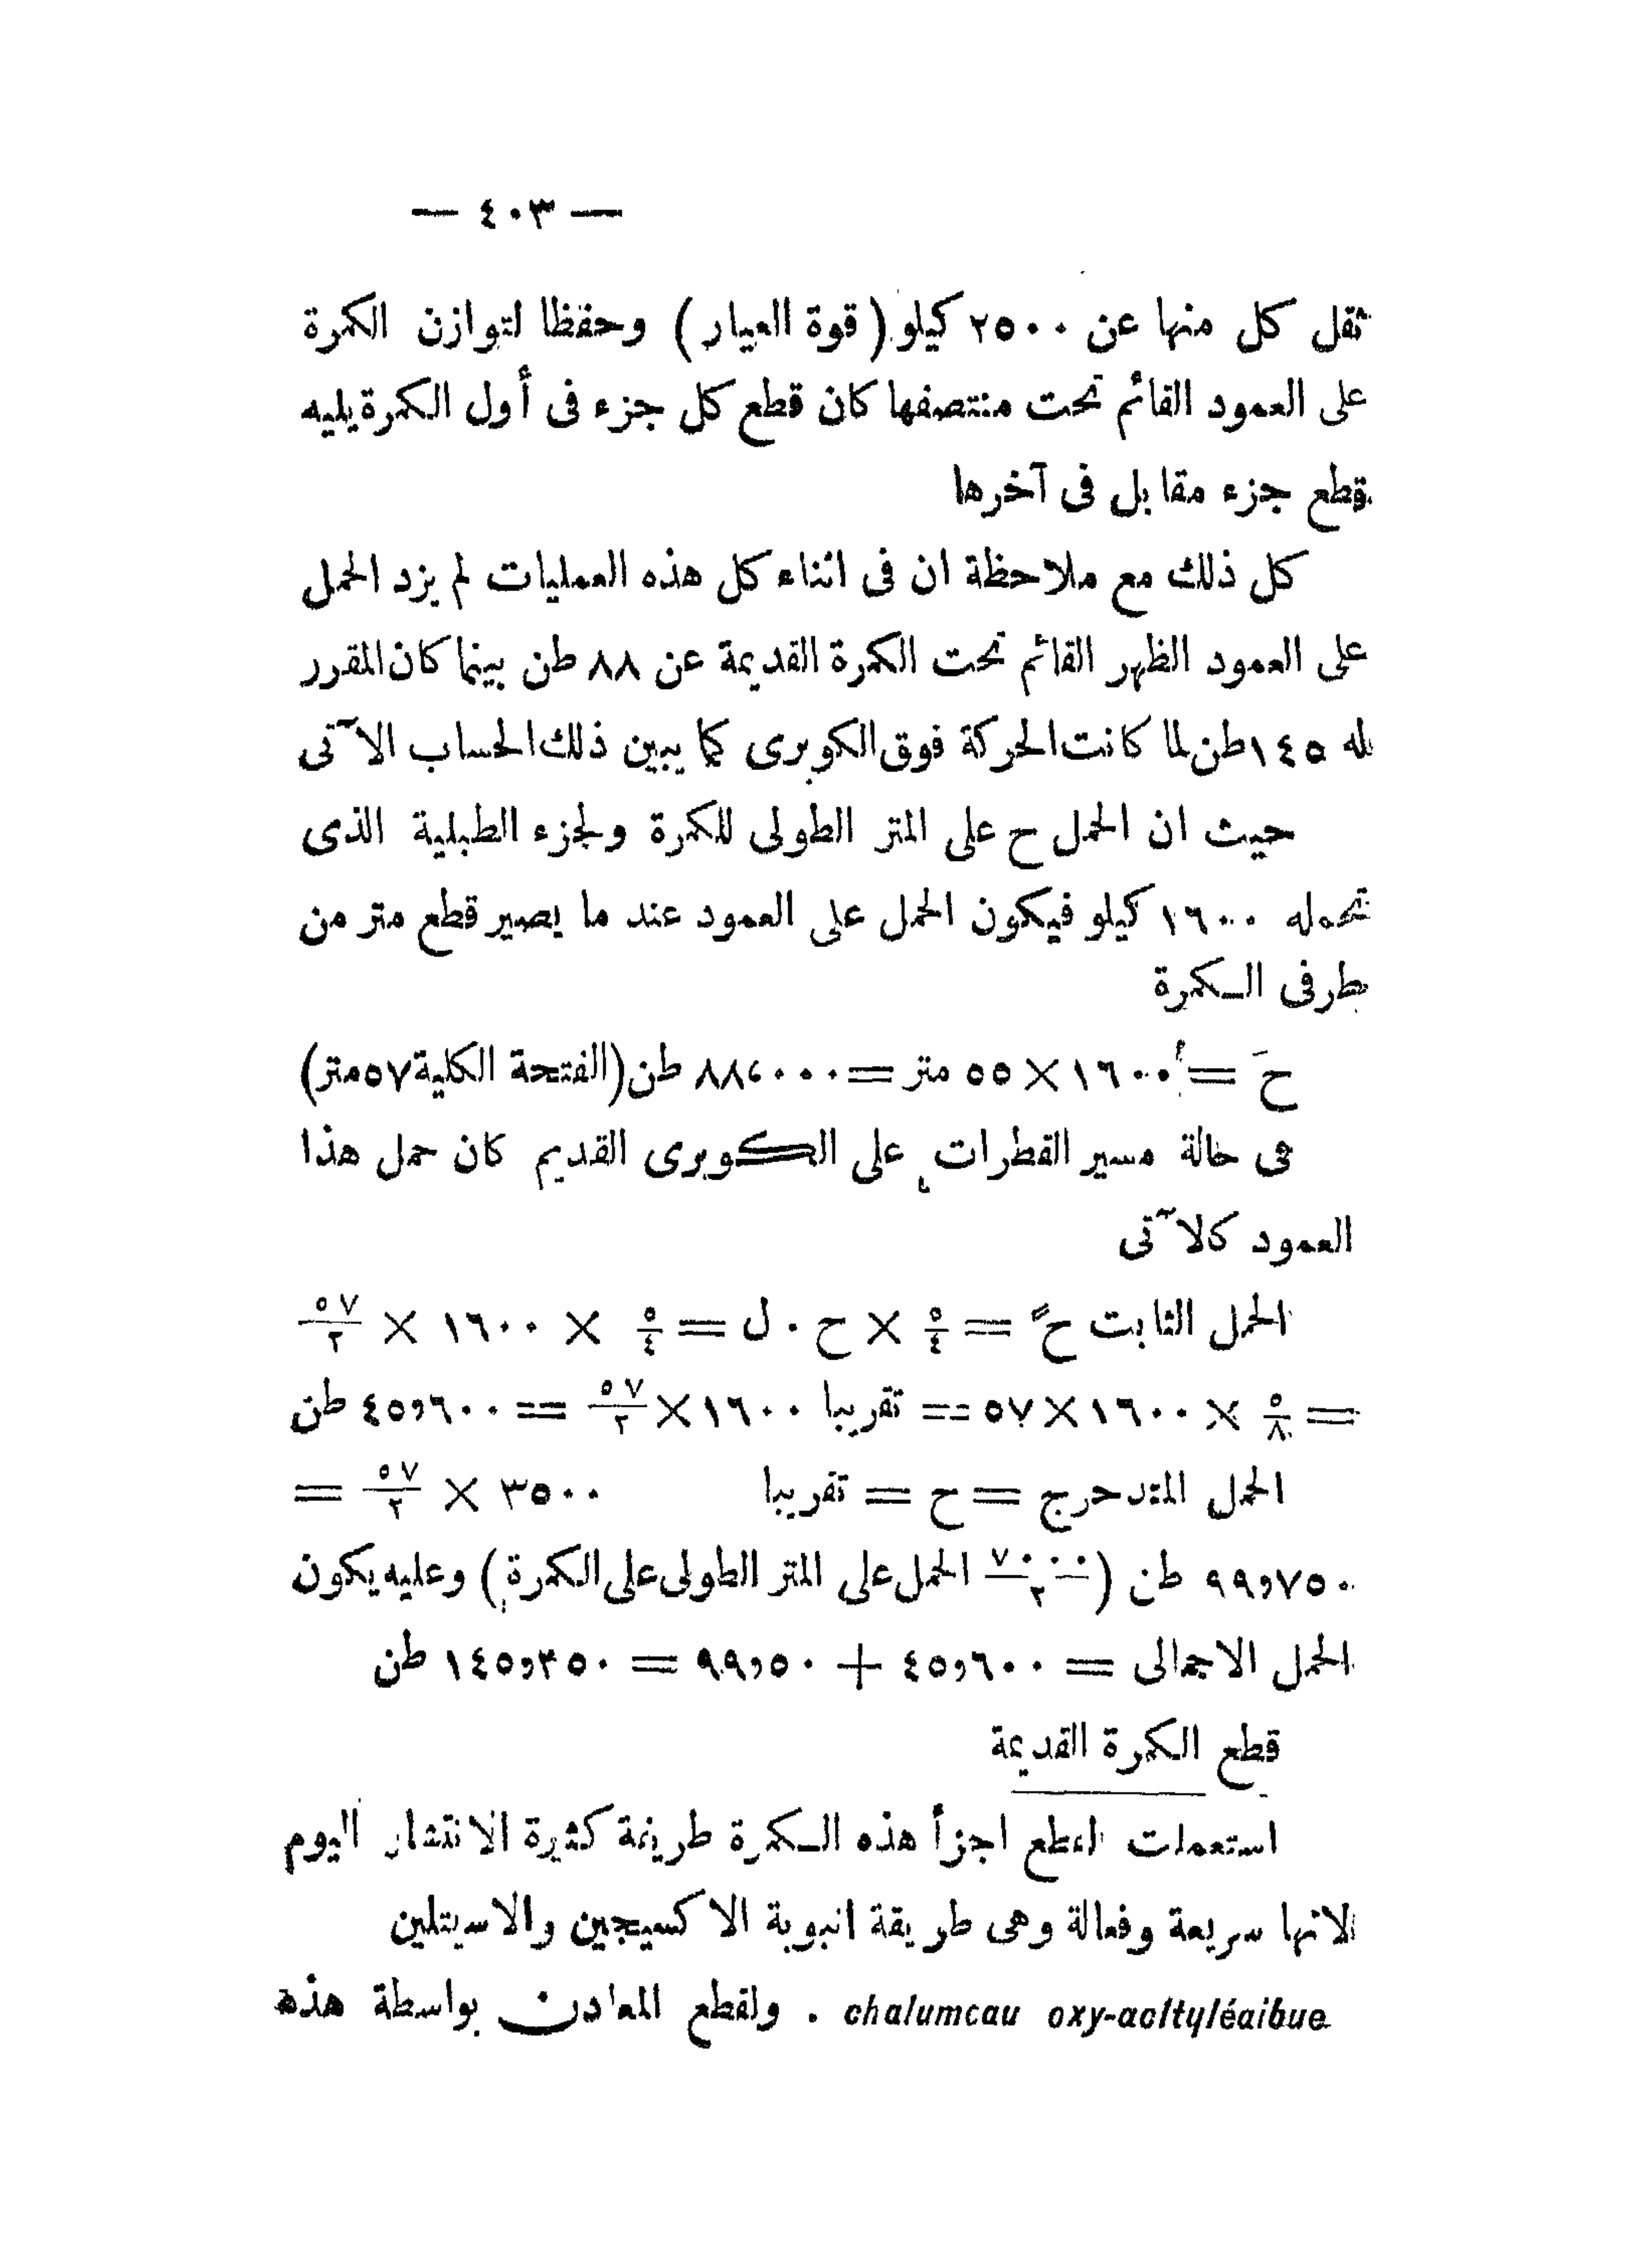 — ٤٠٣ —
ثقل كل منها عن ٢٥٠٠ كيلو (قوة العيار) وحفظا لتوازن الكمرة
على العمود القائم تحت منتصفها كان قطع كل جزء فى أول الكمرة يليه
قطع جزء مقابل فى آخرها
كل ذلك مع ملاحظة ان فى اثناء كل هذه العمليات لم يزد الحمل
على العمود الظهر القائم تحت الكمرة القديمة عن ٨٨ طن بينما كان المقرر
له ١٤٥ طن لما كانت الحركة فوق الكوبرى كما يبين ذلك الحساب الآتى
حيث ان الحمل ح على المتر الطولى للكمرة ولجزء الطبلية الذى
تحمله ١٦٠٠ كيلو فيكون الحمل على العمود عند ما يصير قطع متر من
طرفى الكمرة
حَ = ١٦٠٠ × ٥٥ متر = ٨٨،٠٠٠ طن (الفتحة الكلية ٥٧ متر)
فى حالة مسير القطرات على الكوبرى القديم كان حمل هذا
العمود كالآتى
الحمل الثابت حً = ٥/٤ × ح . ل = ٥/٤ × ١٦٠٠ × ٥٧/٢
= ٥/٨ × ١٦٠٠ × ٥٧ = تقريبا ١٦٠٠ × ٥٧/٢ = ٤٥,٦٠٠ طن
الحمل المتدحرج = ح = تقريبا ٣٥٠٠ × ٥٧/٢ =
٩٩,٧٥٠ طن (٧٠٠٠/٢ الحمل على المتر الطولى على الكمرة) وعليه يكون
الحمل الاجمالى = ٤٥,٦٠٠ + ٩٩,٥٠ = ١٤٥,٣٥٠ طن
قطع الكمرة القديمة
استعملت لقطع اجزأ هذه الكمرة طريقة كثيرة الانتشار اليوم
لانها سريعة وفعالة وهى طريقة انبوبة الاكسيجين والاسيتلين
chalumcau oxy-acltyléaibue . ولقطع المعادن بواسطة هذه